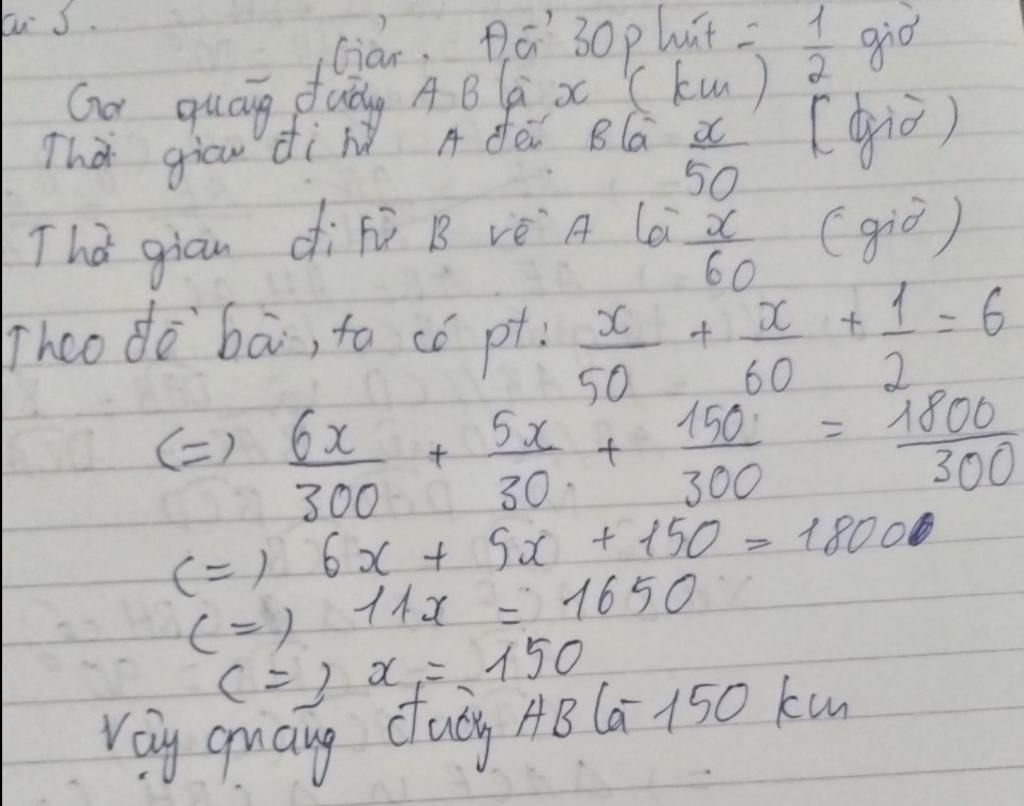 ài 5.
Giải. Đổi 30 phút = 1/2 giờ
Gọi quãng đường AB là x (km)
Thời gian đi từ A đến B là x/50 (giờ)
Thời gian đi từ B về A là x/60 (giờ)
Theo đề bài, ta có pt: x/50 + x/60 + 1/2 = 6
(=) 6x/300 + 5x/30 + 150/300 = 1800/300
(=) 6x + 5x + 150 = 1800
(=) 11x = 1650
(=) x = 150
Vậy quãng đường AB là 150 km